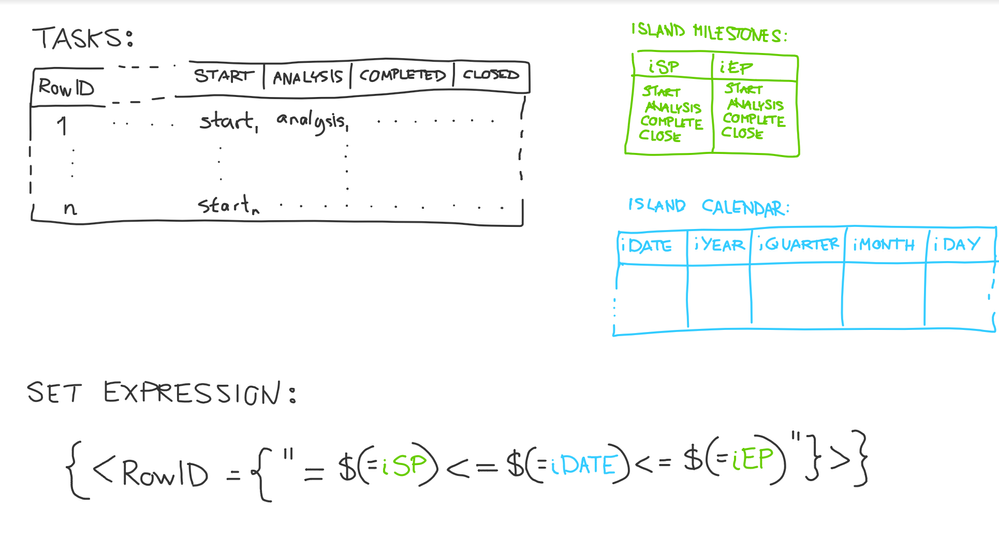 TASKS:
RowID START ANALYSIS COMPLETED CLOSED
1 start, analysis,
n startn
ISLAND MILESTONES:
iSP iEP
START START
ANALYSIS ANALYSIS
COMPLETE COMPLETE
CLOSE CLOSE
ISLAND CALENDAR:
iDATE iYEAR iQUARTER iMONTH iDAY
SET EXPRESSION:
{<RowID = {"= $(=iSP) <= $(=iDATE) <= $(=iEP)"}>}